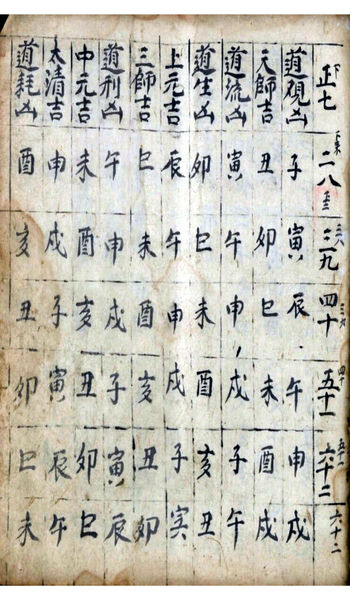 正七 二八 三九 四十 五十一 六十二 六十二
道視凶 子 寅 辰 午 申 戌
天師吉 丑 卯 巳 未 酉 戌
道流凶 寅 午 申 戌 子 午
道生凶 卯 巳 未 酉 亥 丑
上元吉 辰 午 申 戌 子 寅
三師吉 巳 未 酉 亥 丑 卯
道刑凶 午 申 戌 子 寅 辰
中元吉 未 酉 亥 丑 卯 巳
太清吉 申 戌 子 寅 辰 午
道耗凶 酉 亥 丑 卯 巳 未